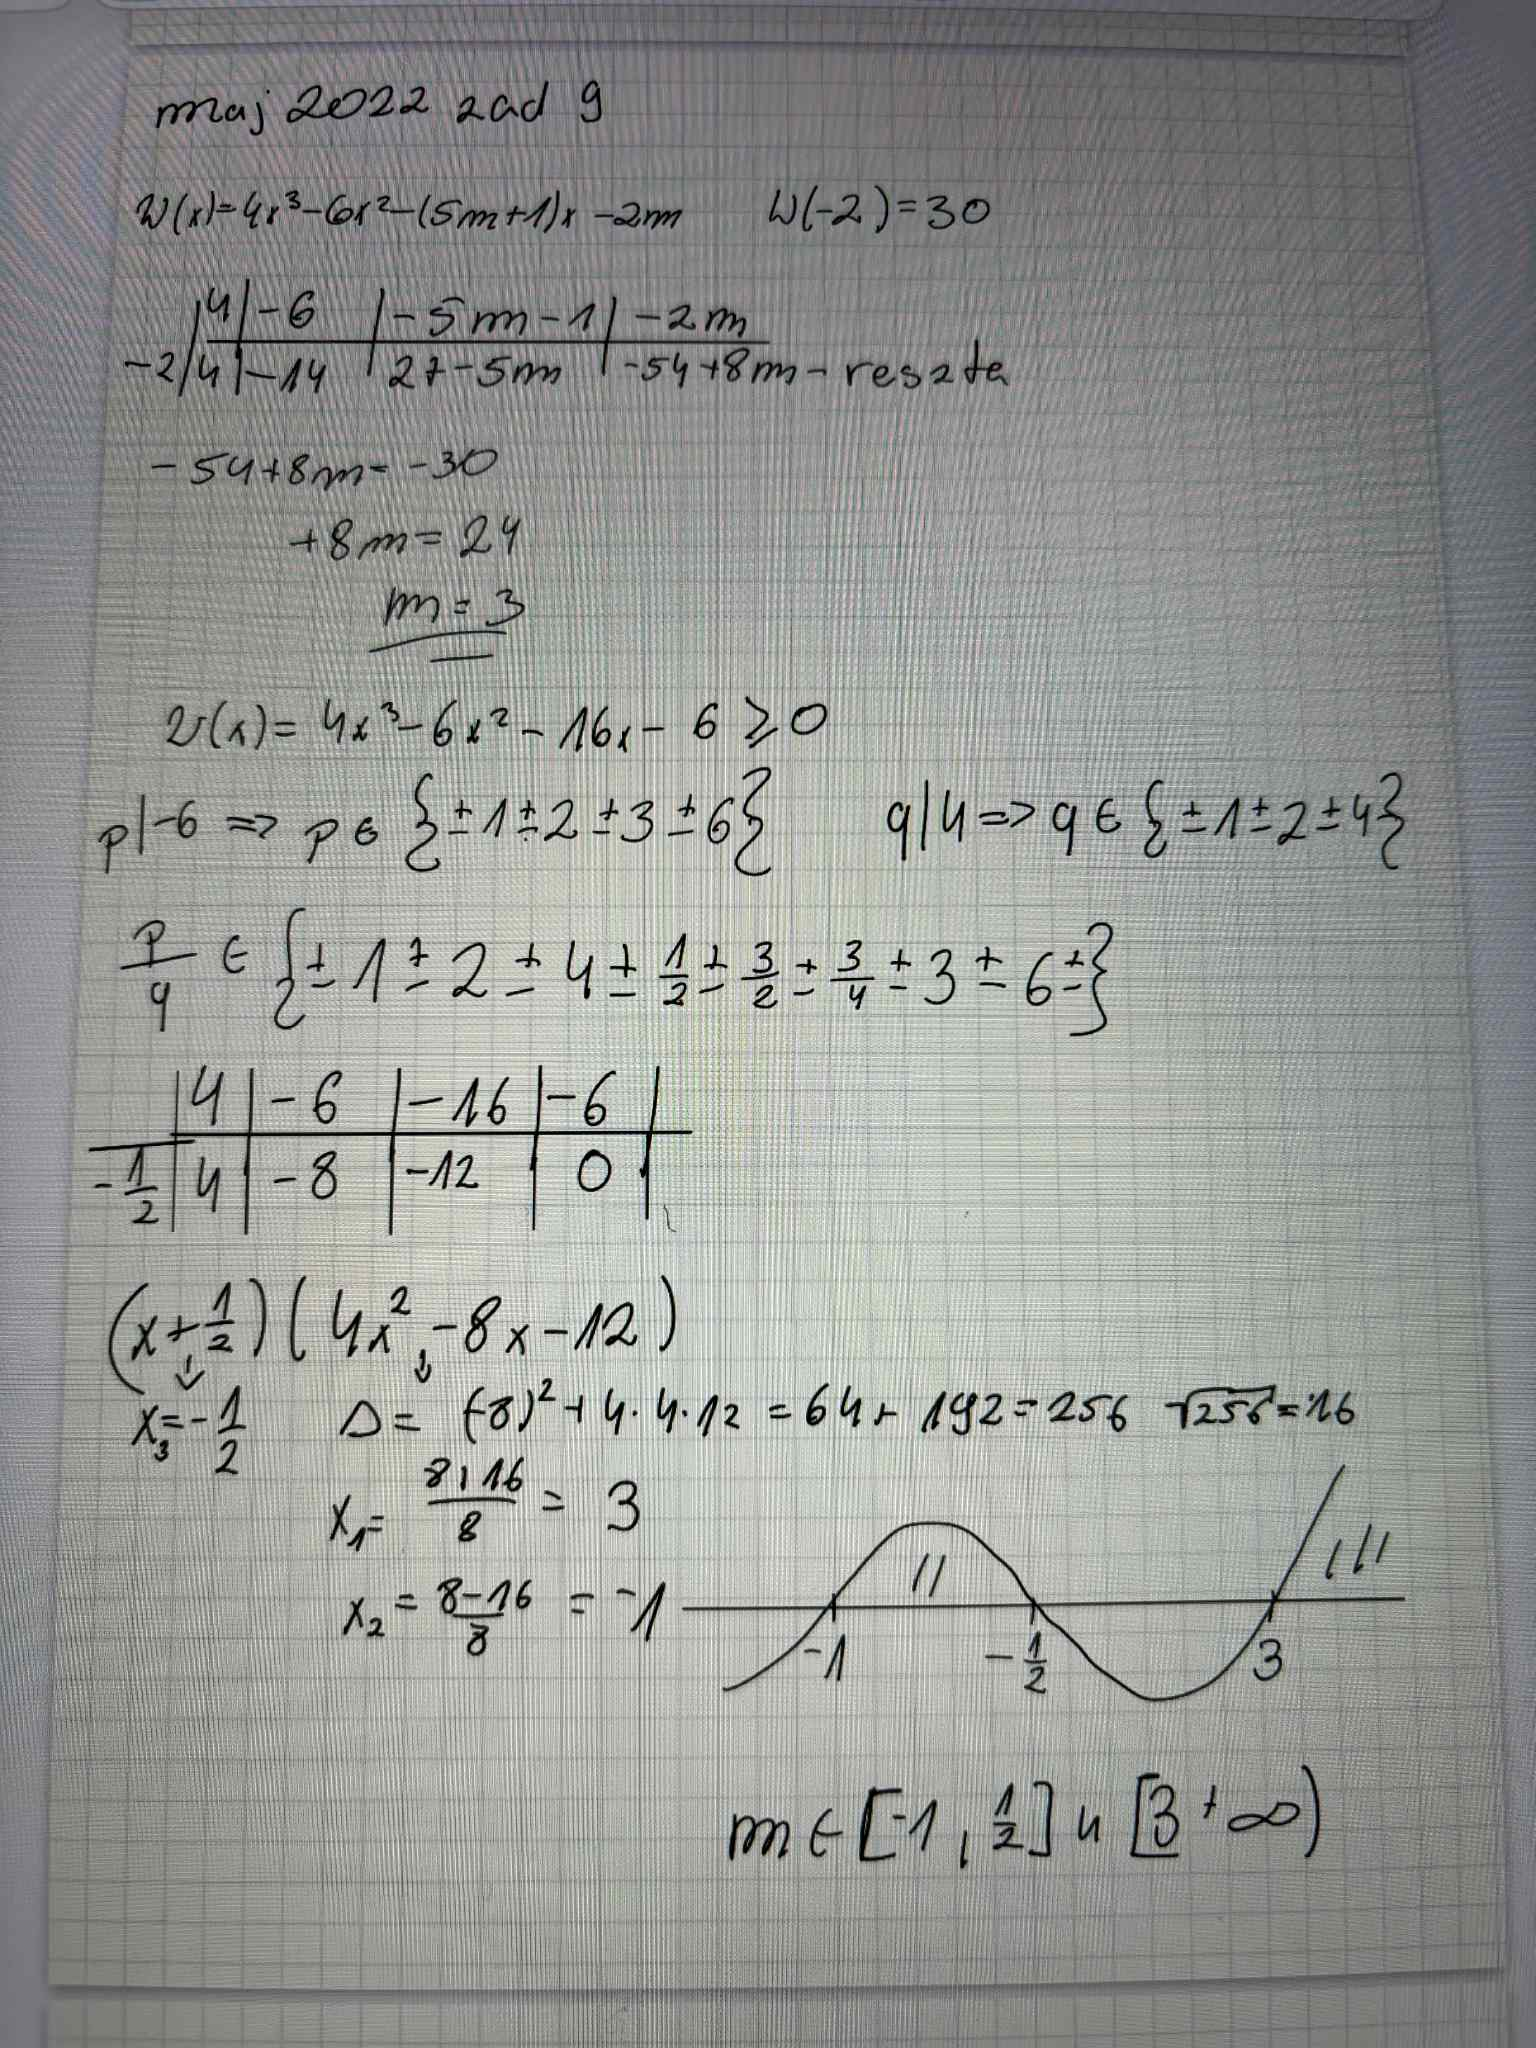 maj 2022 zad 9
W(x)=4x³-6x²-(5m+1)x-2m W(-2)=30
4 | -6 | -5m-1 | -2m
-2 | 4 | -14 | 27-5m | -54+8m - reszta
-54+8m=-30
+8m=24
m=3
W(x)=4x³-6x²-16x-6≥0
p|-6 => p∈{±1±2±3±6} q|4=>q∈{±1±2±4}
p/q ∈ {±1±2±4±1/2±3/2±3/4±3±6±}
4 | -6 | -16 | -6
-1/2 | 4 | -8 | -12 | 0
(x+1/2)(4x²-8x-12)
x₃=-1/2 Δ=(-8)²+4·4·12=64+192=256 √256=16
x₁=8+16/8=3
x₂=8-16/8=-1
-1 -1/2 3
m∈[-1,1/2]u[3+∞)